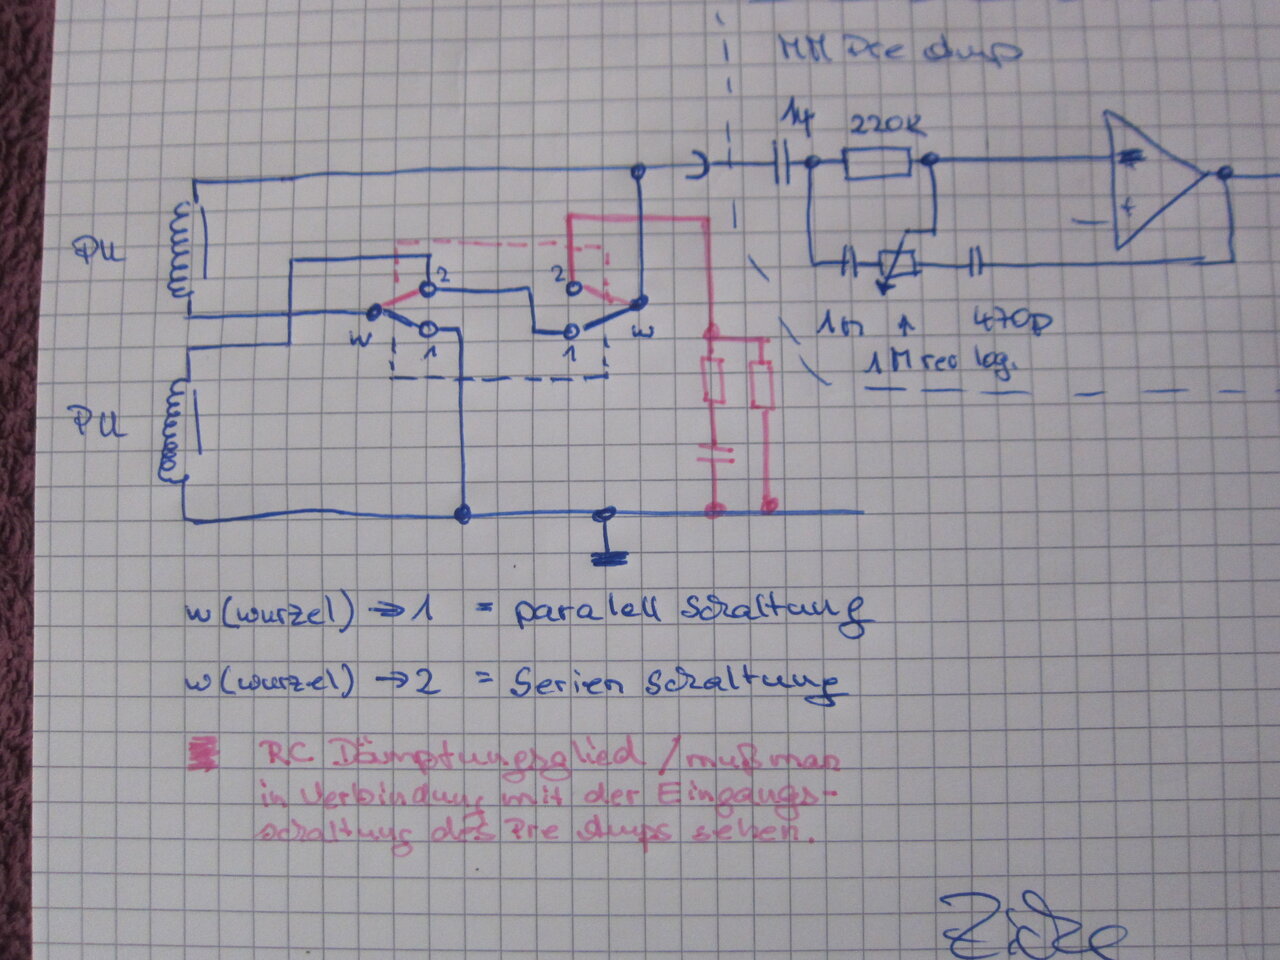 MM Pre Amp
1µ 220K
PU
2 2
W 1 1 W
- +
1n 470p
1M rev log.
PU
w (wurzel) → 1 = paralell Schaltung
w (wurzel) → 2 = Serien Schaltung
RC Dämpfungsglied / muß man
in Verbindung mit der Eingangs-
schaltung des Pre Amps sehen.